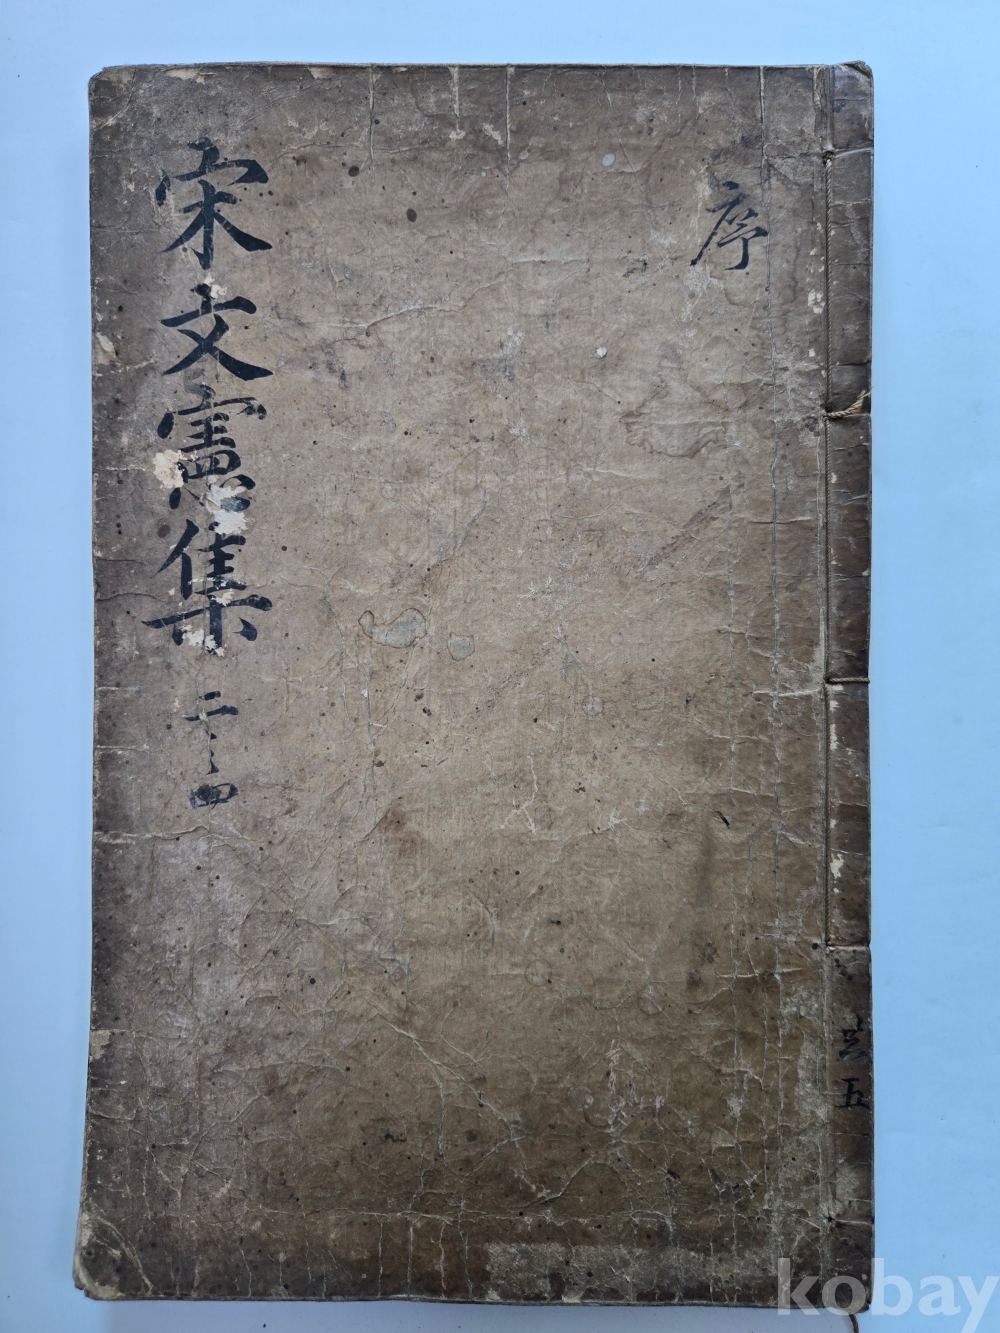 序
共五
宋文憲集 二之四
kobay